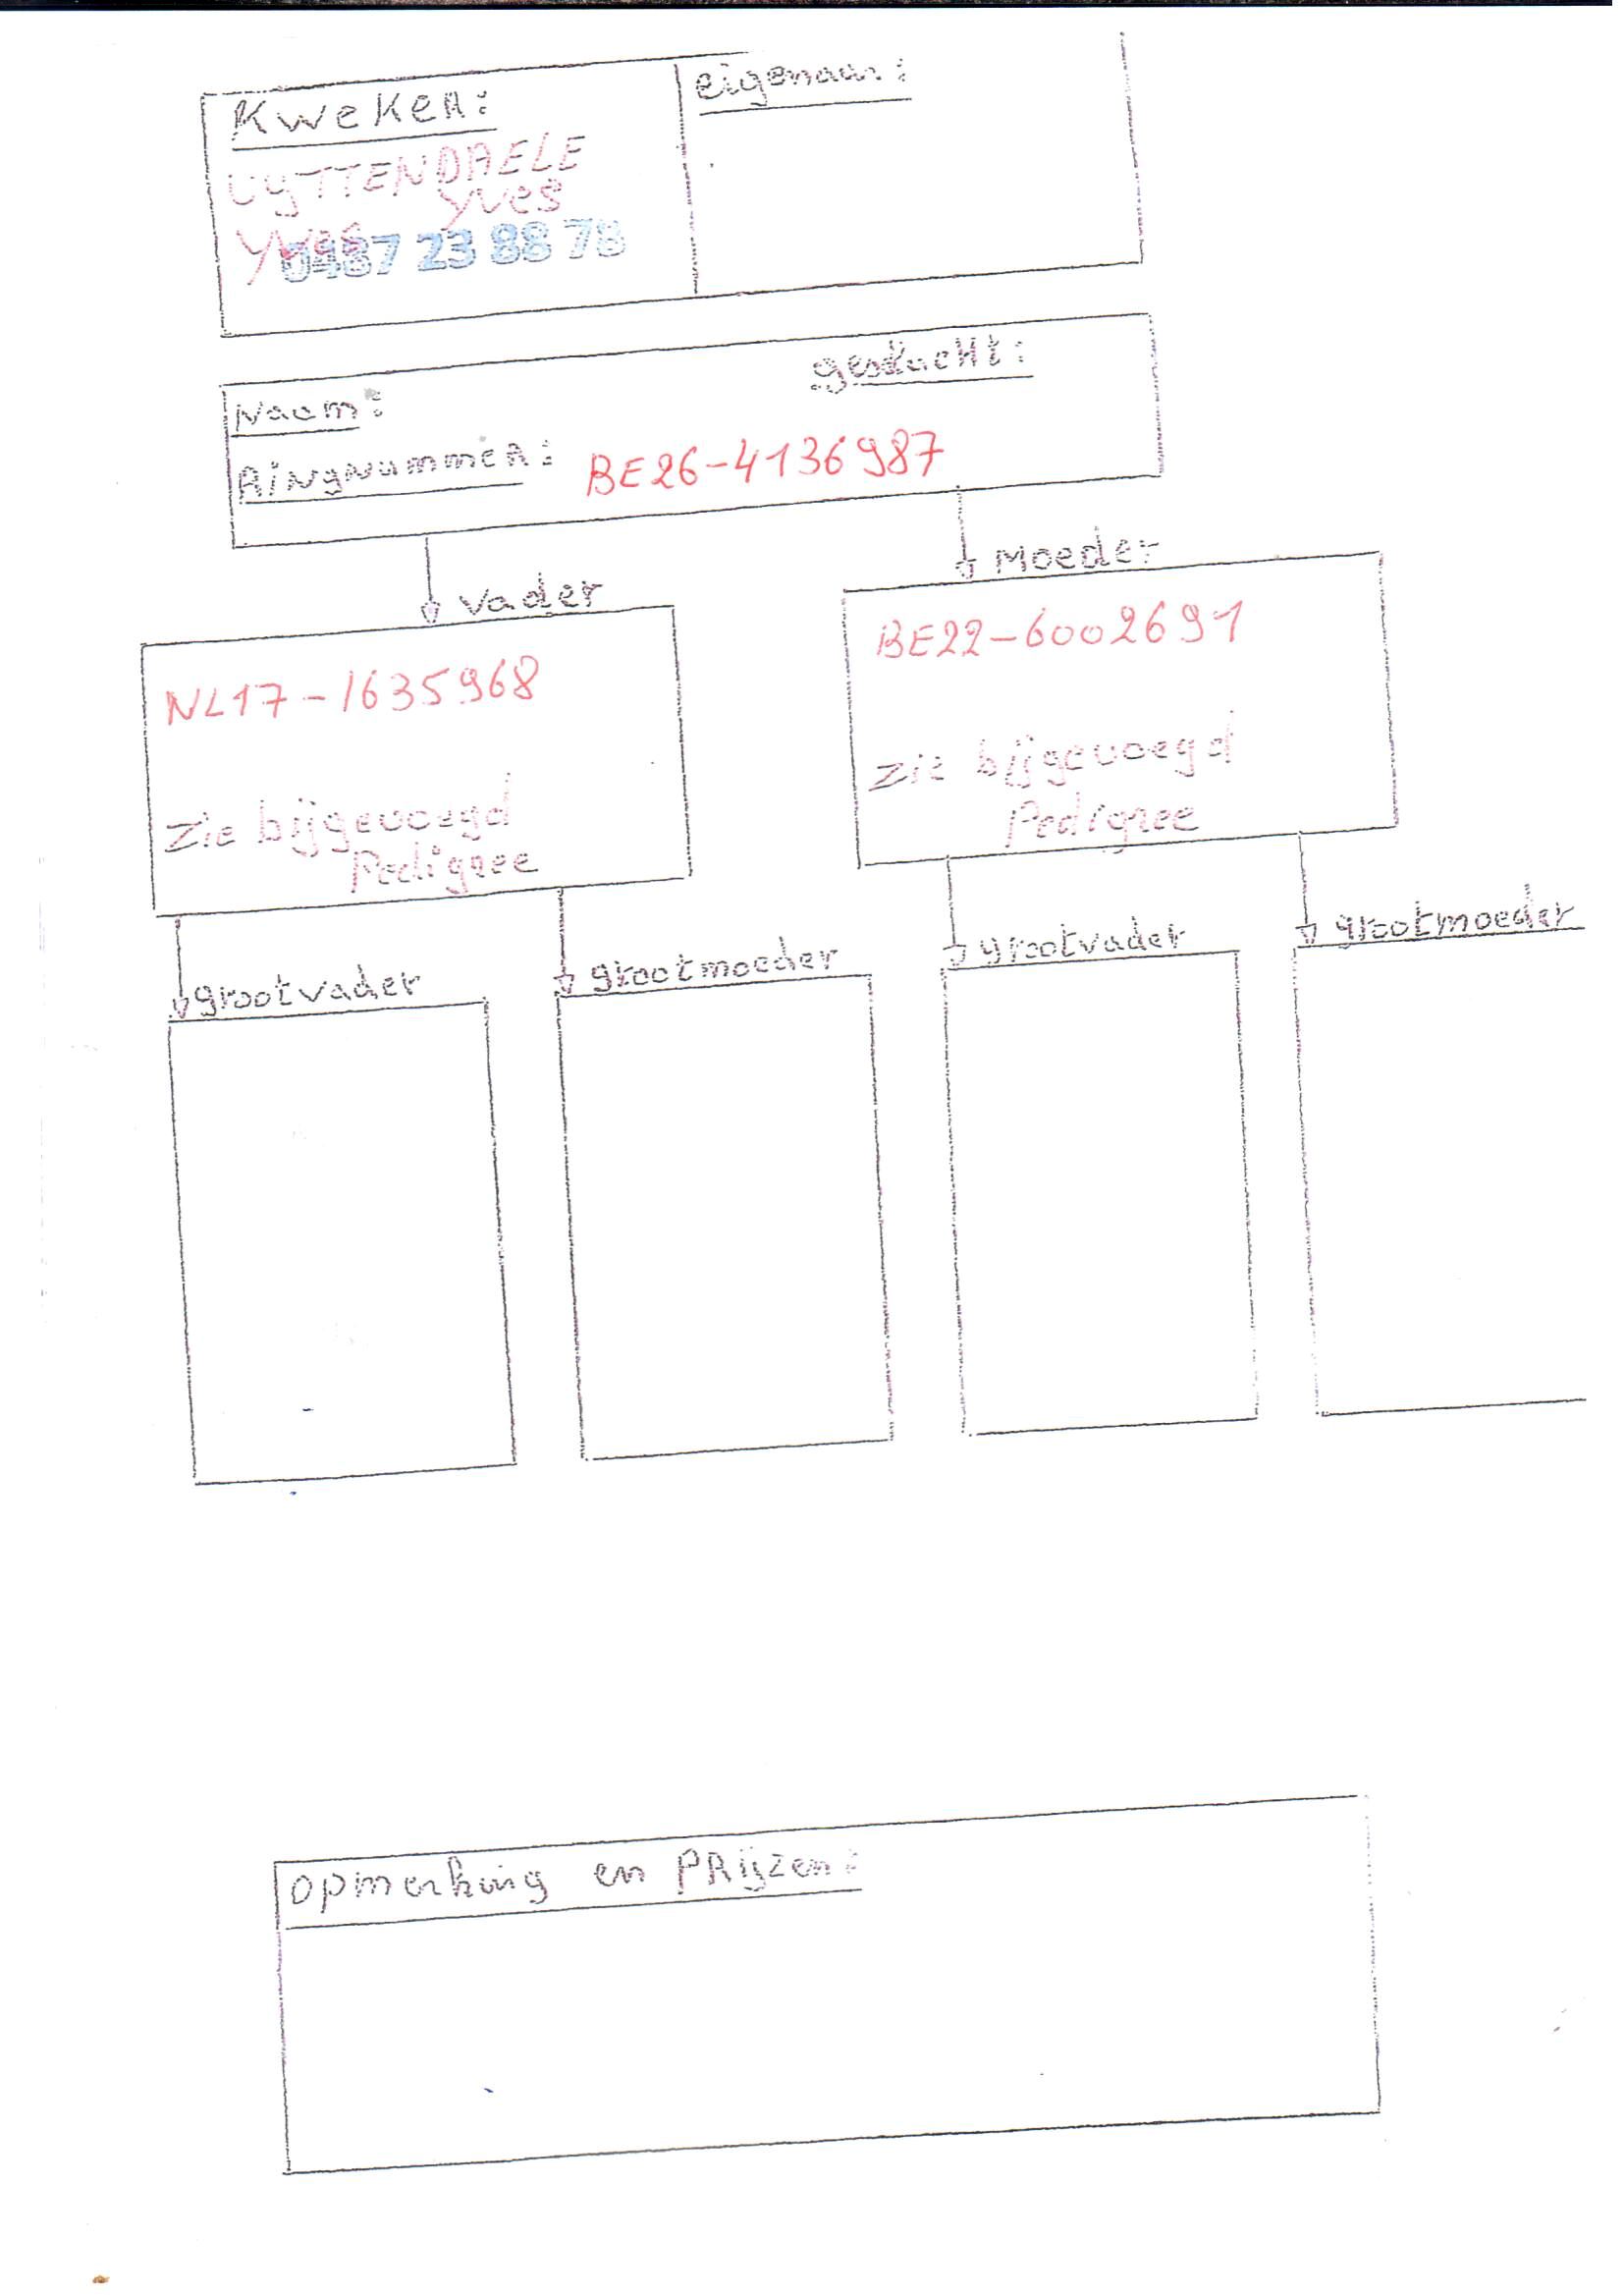 Kweker:
eigenaar:
UYTTENDAELE
Yves
Yves
0487 23 88 78
geslacht:
Naam:
Ringnummer: BE26-4136987
Moeder
Vader
BE22-6002691
NL17-1635968
Zie bijgevoegd
Pedigree
Zie bijgevoegd
Pedigree
grootvader
grootmoeder
grootvader
grootmoeder
Opmerking en PRijzen: